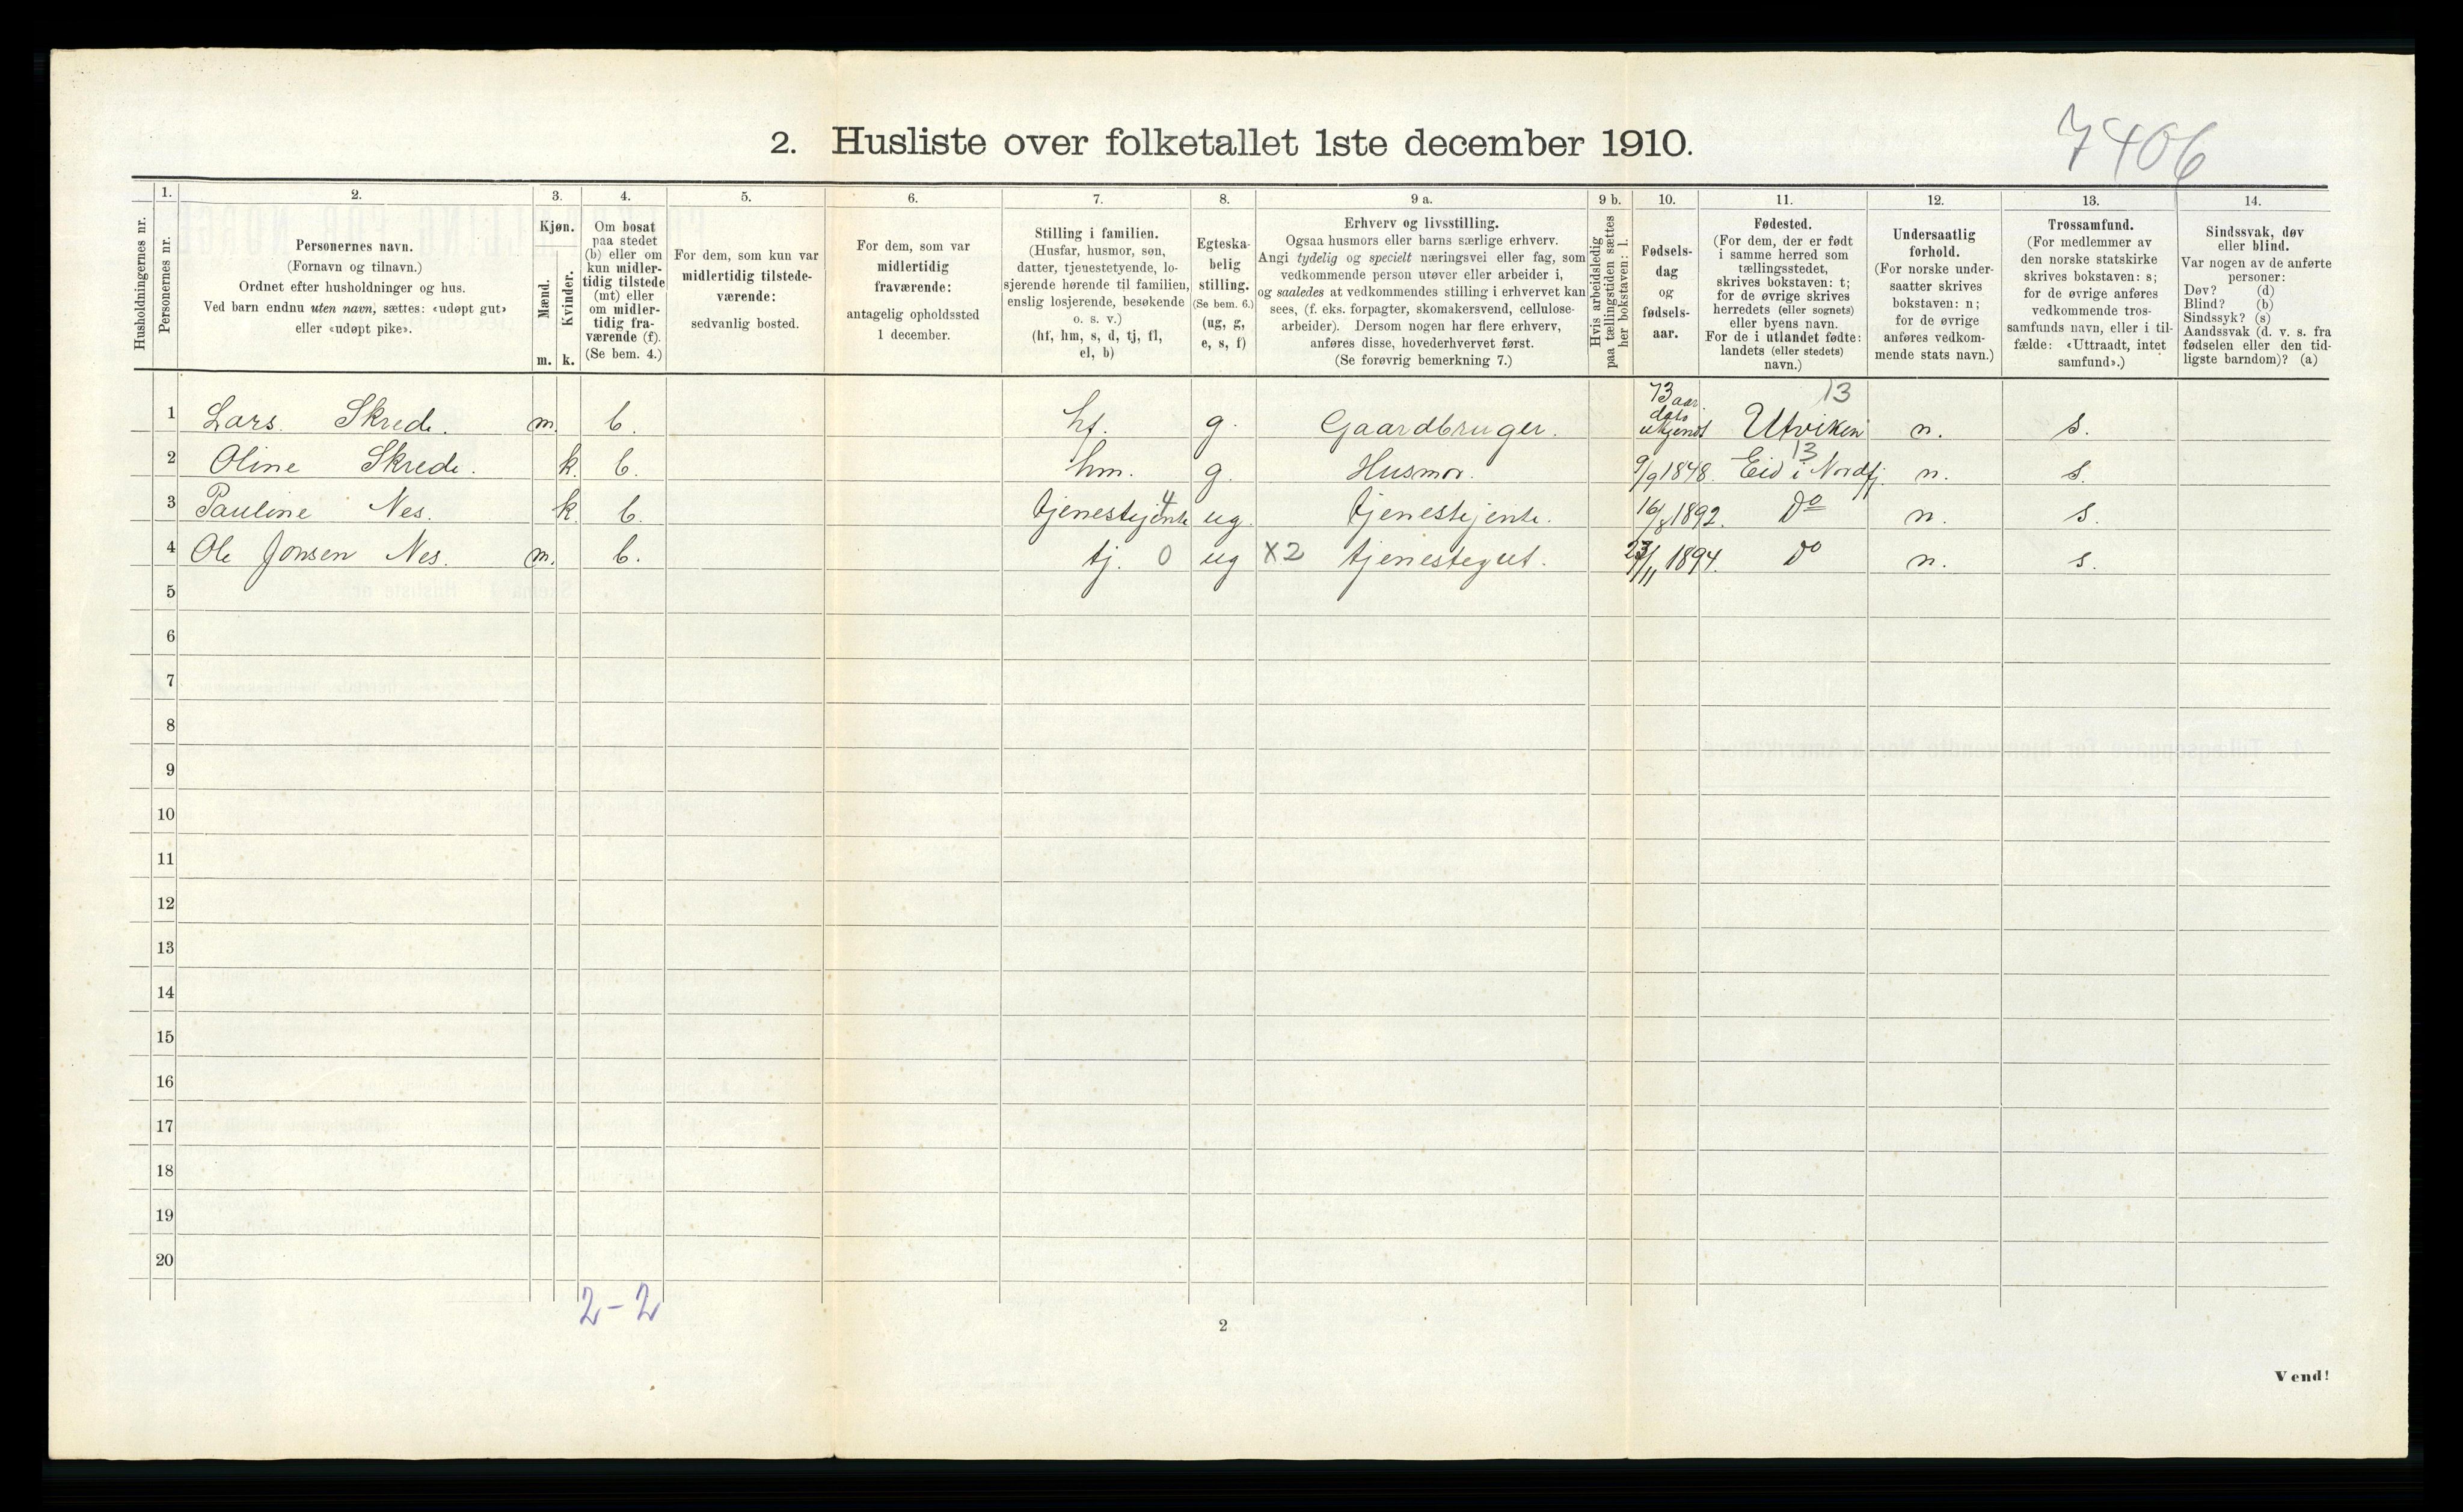 7406
2. Husliste over folketallet 1ste december 1910.
Husholdningernes nr.
1.
Personernes nr.
2.
Personernes navn.
(Fornavn og tilnavn.)
Ordnet efter husholdninger og hus.
Ved barn endnu uten navn, sættes: «udøpt gut»
eller «udøpt pike».
3.
Kjøn.
Mænd.
Kvinder.
m. k.
4.
Om bosat
paa stedet
(b) eller om
kun midler-
tidig tilstede
(mt) eller
om midler-
tidig fra-
værende (f).
(Se bem. 4.)
5.
For dem, som kun var
midlertidig tilstede-
værende:
sedvanlig bosted.
6.
For dem, som var
midlertidig
fraværende:
antagelig opholdssted
1 december.
7.
Stilling i familien.
(Husfar, husmor, søn,
datter, tjenestetyende, lo-
sjerende hørende til familien,
enslig losjerende, besøkende
o. s. v.)
(hf, hm, s, d, tj, fl,
el, b)
8.
Egteska-
belig
stilling.
(Se bem. 6.)
(ug, g,
e, s, f)
9 a.
Erhverv og livsstilling.
Ogsaa husmors eller barns særlige erhverv.
Angi tydelig og specielt næringsvei eller fag, som
vedkommende person utøver eller arbeider i,
og saaledes at vedkommendes stilling i erhvervet kan
sees, (f. eks. forpagter, skomakersvend, cellulose-
arbeider). Dersom nogen har flere erhverv,
anføres disse, hovederhvervet først.
(Se forøvrig bemerkning 7.)
9 b.
Hvis arbeidsledig
paa tællingstiden sættes
her bokstaven: l.
10.
Fødsels-
dag
og
fødsels-
aar.
11.
Fødested.
(For dem, der er født
i samme herred som
tællingsstedet,
skrives bokstaven: t;
for de øvrige skrives
herredets (eller sognets)
eller byens navn.
For de i utlandet fødte:
landets (eller stedets)
navn.)
12.
Undersaatlig
forhold.
(For norske under-
saatter skrives
bokstaven: n;
for de øvrige
anføres vedkom-
mende stats navn.)
13.
Trossamfund.
(For medlemmer av
den norske statskirke
skrives bokstaven: s;
for de øvrige anføres
vedkommende tros-
samfunds navn, eller i til-
fælde: «Uttraadt, intet
samfund».)
14.
Sindssvak, døv
eller blind.
Var nogen av de anførte
personer:
Døv? (d)
Blind? (b)
Sindssyk? (s)
Aandssvak (d. v. s. fra
fødselen eller den tid-
ligste barndom)? (a)
1 Lars. Skrede. m. b. hf. g. Gaardbruger. 73 aar. dato ukjendt 13 Utviken n. s.
2 Oline Skrede. k. b. hm. g. Husmor. 9/9 1848. 13 Eid i Nordfj. n. s.
3 Pauline Nes. k. b. tjenestejente 4 ug. tjenestejente. 16/8 1892. Do n. s.
4 Ole Jonsen Nes. m. b. tj. 0 ug X2 tjenestegut. 23/11 1894. Do n. s.
5
6
7
8
9
10
11
12
13
14
15
16
17
18
19
20
2-2
2
Vend!